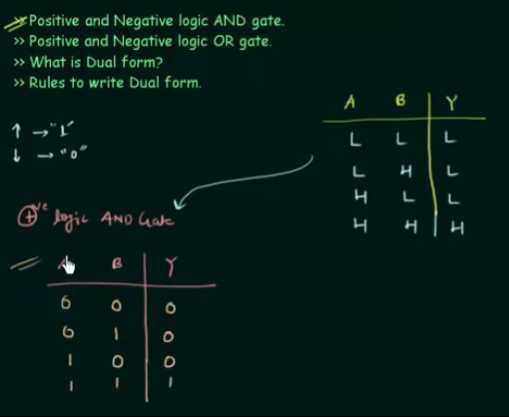 » Positive and Negative logic AND gate.
» Positive and Negative logic OR gate.
» What is Dual form?
» Rules to write Dual form.
↑ → "1"
↓ → "0"
A B Y
L L L
L H L
H L L
H H H
+ve logic AND Gate
A B Y
0 0 0
0 1 0
1 0 0
1 1 1